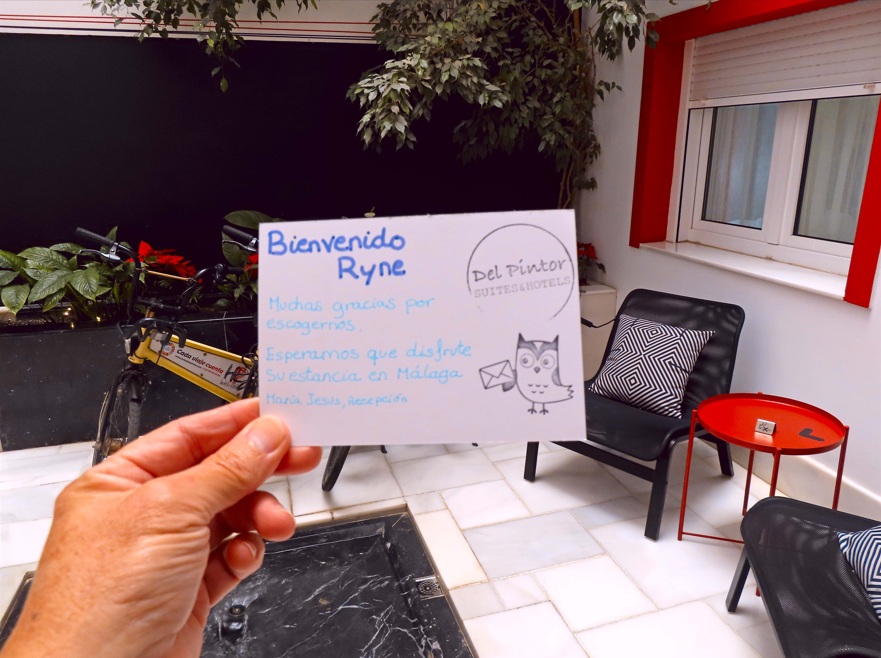 Bienvenido
Ryne
Del Pintor
SUITES&HOTELS
Muchas gracias por
escogernos.
Esperamos que disfrute
su estancia en Málaga
María Jesús, Recepción
Cada viaje cuenta